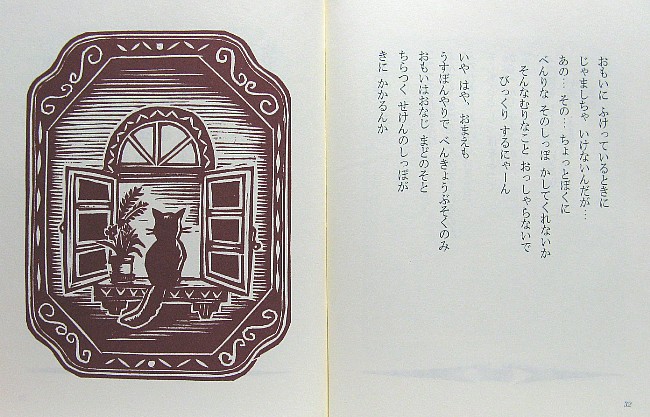 おもいに ふけっているときに
じゃましちゃ いけないんだが…
あの… その… ちょっとぼくに
べんりな そのしっぽ かしてくれないか
そんなむりなこと おっしゃらないで
びっくり するにゃーん
いや はや、おまえも
うすぼんやりで べんきょうぶそくのみ
おもいはおなじ まどのそと
ちらつく せけんのしっぽが
きに かかるんか
32